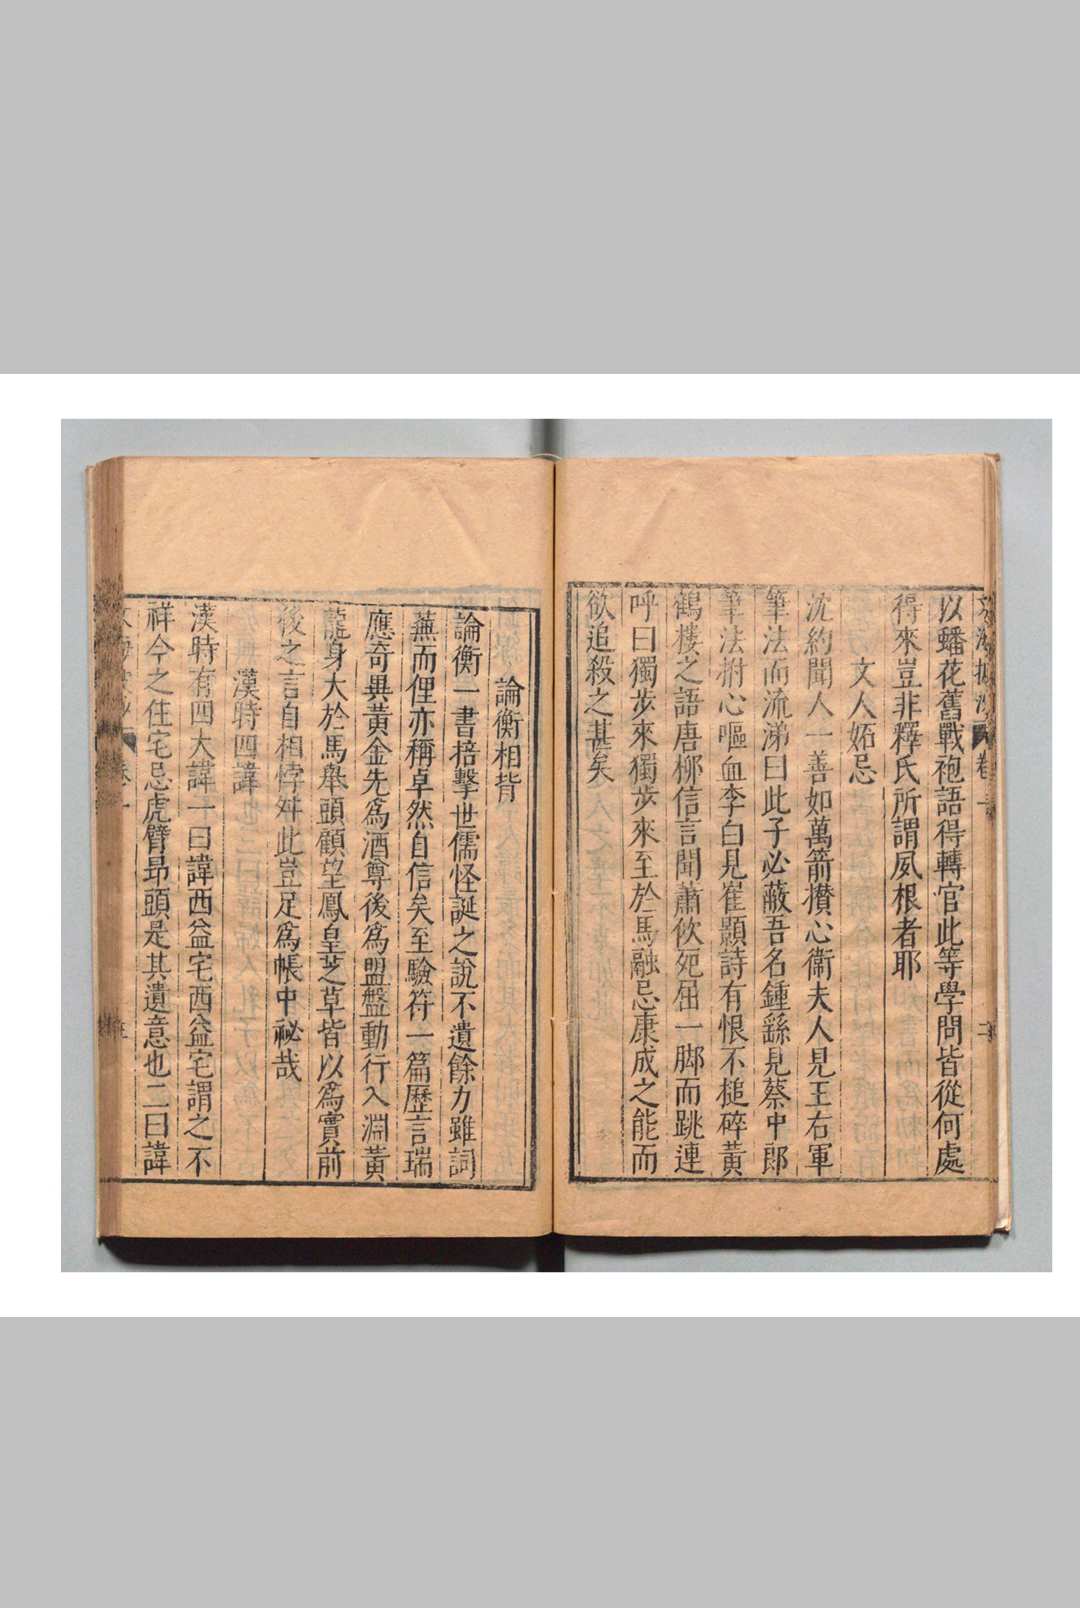 以蟠花舊戰袍語得轉官此等學問皆從何處
得來豈非釋氏所謂夙根者耶
文人妬忌
沈約聞人一善如萬箭攅心衛夫人見王右軍
筆法而流涕曰此子必蔽吾名鍾繇見蔡中郎
筆法拊心嘔血李白見崔顥詩有恨不槌碎黃
鶴樓之語唐栁信言聞蕭俠死屈一脚而跳連
呼曰獨步來獨步來至於馬融忌康成之能而
欲追殺之甚矣
論衡相背
論衡一書掊擊世儒怪誕之說不遺餘力雖詞
蕪而俚亦稱卓然自信矣至驗符一篇歷言瑞
應奇異黃金先爲酒尊後爲盟盤動行入淵黃
龍身大於馬舉頭顧望鳳皇芝草皆以爲實前
後之言自相悖舛此豈足爲帳中祕哉
漢時四諱
漢時有四大諱一曰諱西益宅西益宅謂之不
祥今之住宅忌虎臂昂頭是其遺意也二曰諱